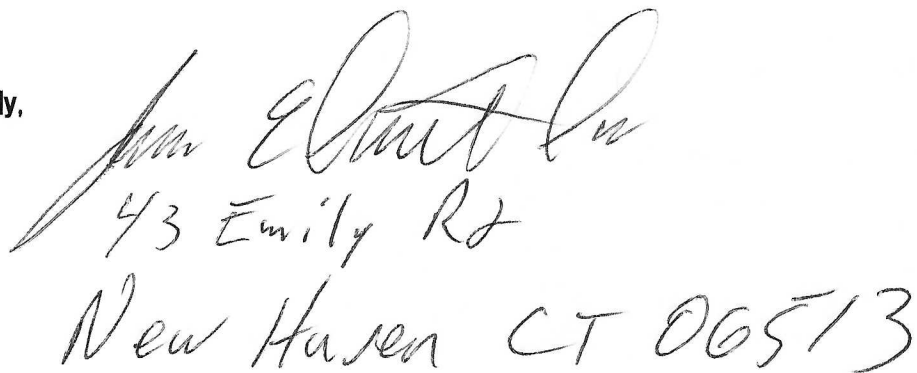 ly,
43 Emily Rd
New Haven CT 06513